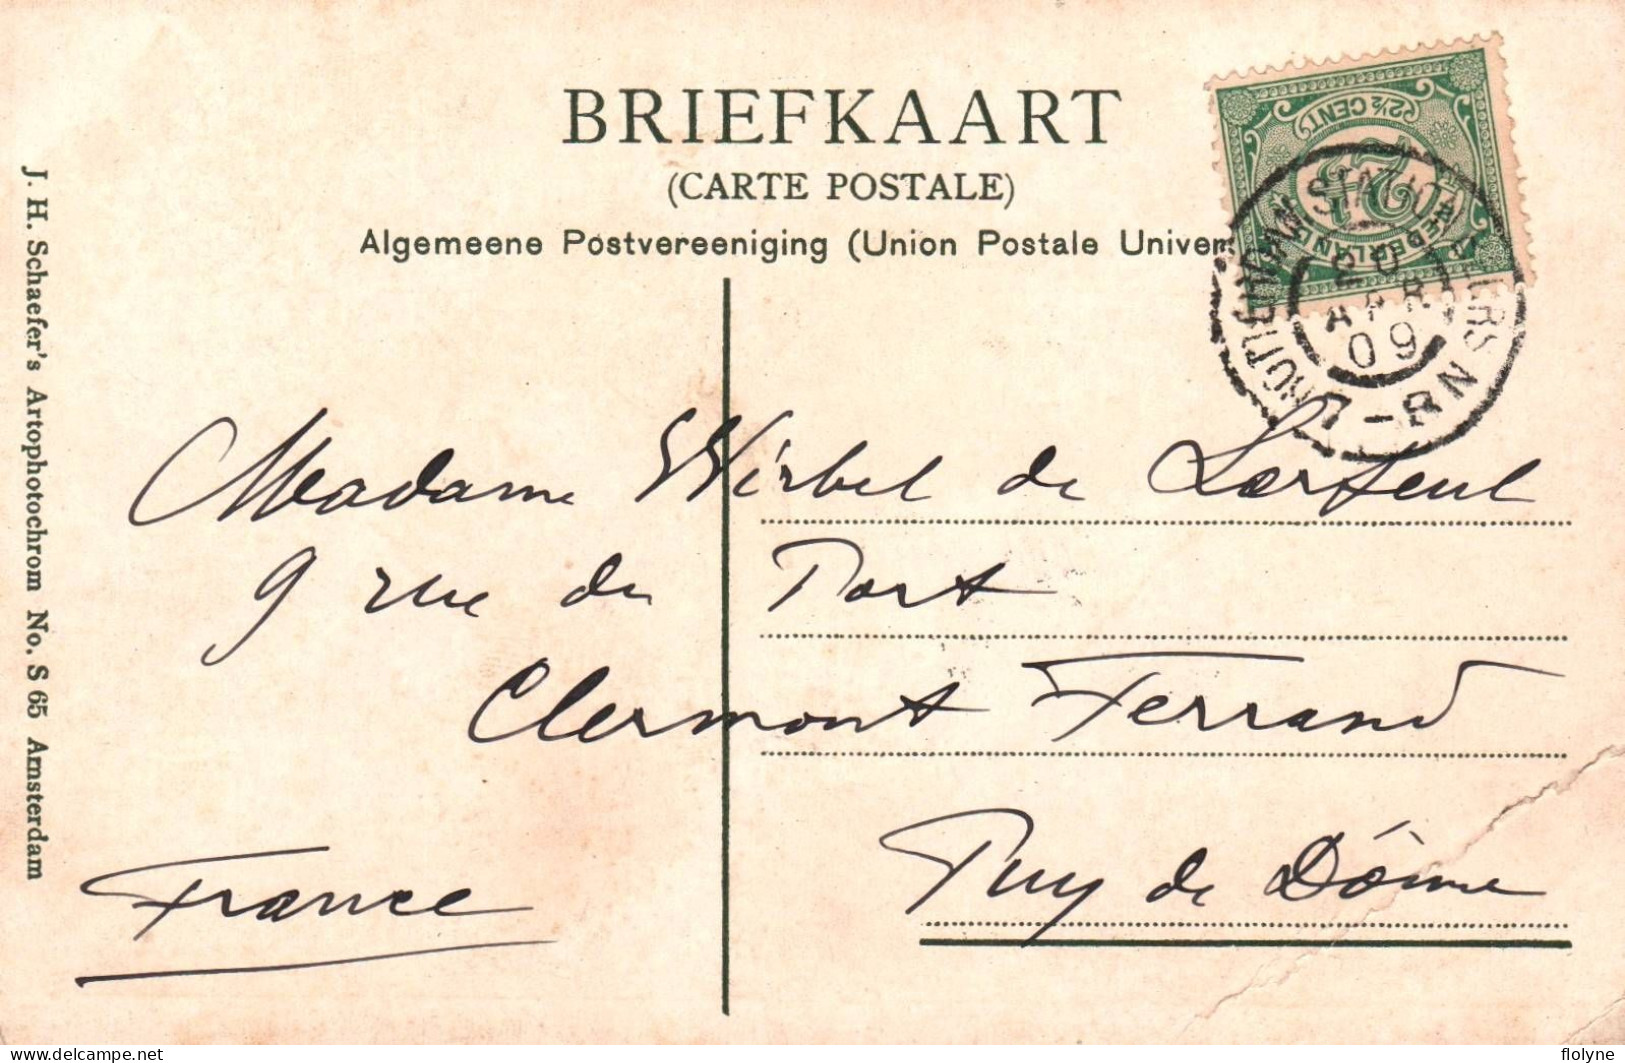 BRIEFKAART
(CARTE POSTALE)
Algemeene Postvereeniging (Union Postale Univer
2½ CENT
2½
NEDERLAND
20
APR
09
7-8N
J. H. Schaefer's Artophotochrom No. S 65 Amsterdam
Madame Wirbel de
9 rue du Port
Clermont Ferrand
Puy de Dôme
France
delcampe.net
flolyne